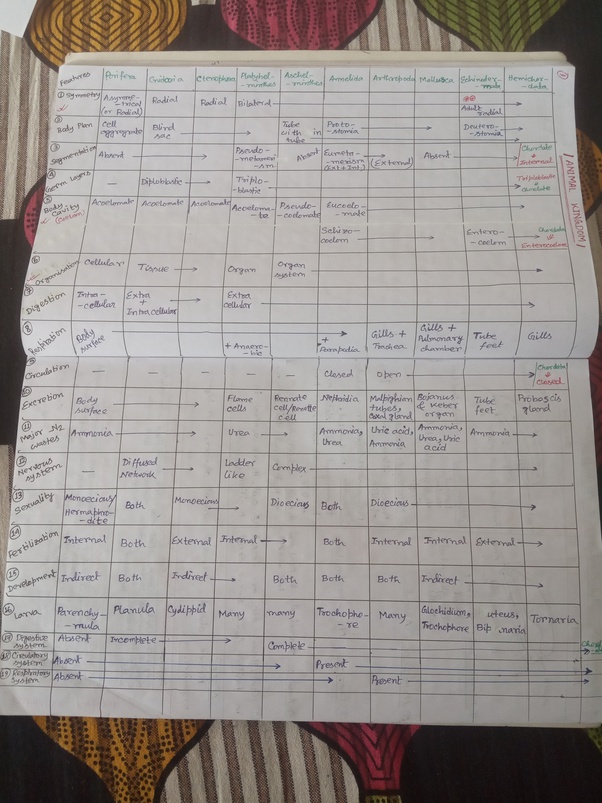 ①
| ANIMAL KINGDOM |
Features Porifera Cnidaria Ctenophora Platyhel--minthes Aschel-minthes Annelida Arthropoda Mollusca Echinder--mata Hemichor--data
① Symmetry Asymme--trical (or Radial) Radial Radial Bilateral → Adult radial →
② Body Plan Cell aggregrate Blind sac → Tube with in tube Proto--stomia → Deutero--stomia →
③ Segmentation Absent → Pseudo--metameri-sm Absent Eumeta-merism (Ext+Int) (External) Absent → Chordate Internal
④ Germ Layers — Diploblastic → Triplo-blastic → Triploblastic
⑤ Body Cavity (Coelom) Acoelomate Acoelomate Acoelomate Acoeloma-te Pseudo-coelomate Eucoelo-mate →
Schizo-coelom → Entero--coelom Chordate Enterocoelom
⑥ Organisation Cellular Tissue → Organ Organ system →
⑦ Digestion Intra--cellular Extra + Intracellular → Extra cellular →
⑧ Respiration Body Surface → + Anaero--bic + Parapodia Gills + Trachea Gills + Pulmonary chamber Tube feet Gills
⑨ Circulation — — — — — Closed Open → Chordata Closed
⑩ Excretion Body surface → Flame cells Rennate cell/Renette cell Nephridia Malpighian tubes, coxal gland Bojanus & Keber organ Tube feet Proboscis gland
⑪ Major N₂ wastes Ammonia → Urea → Ammonia, Urea Uric acid, Ammonia Ammonia, Urea, Uric acid Ammonia →
⑫ Nervous system — Diffused Network → Ladder like Complex →
⑬ Sexuality Monoecious/ Hermaphro-dite Both Monoecious → Dioecious Both Dioecious →
⑭ Fertilization Internal Both External Internal → Both Internal Internal External →
⑮ Development Indirect Both Indirect → Both Both Both Indirect →
⑯ Larva Parenchy--mula Planula Cydippid Many many Trochopho-re Many Glochidium, Trochophore Tornaria
⑰ Digestive system Absent Incomplete → Complete →
⑱ Circulatory system Absent → Present →
⑲ Respiratory system Absent → Present →